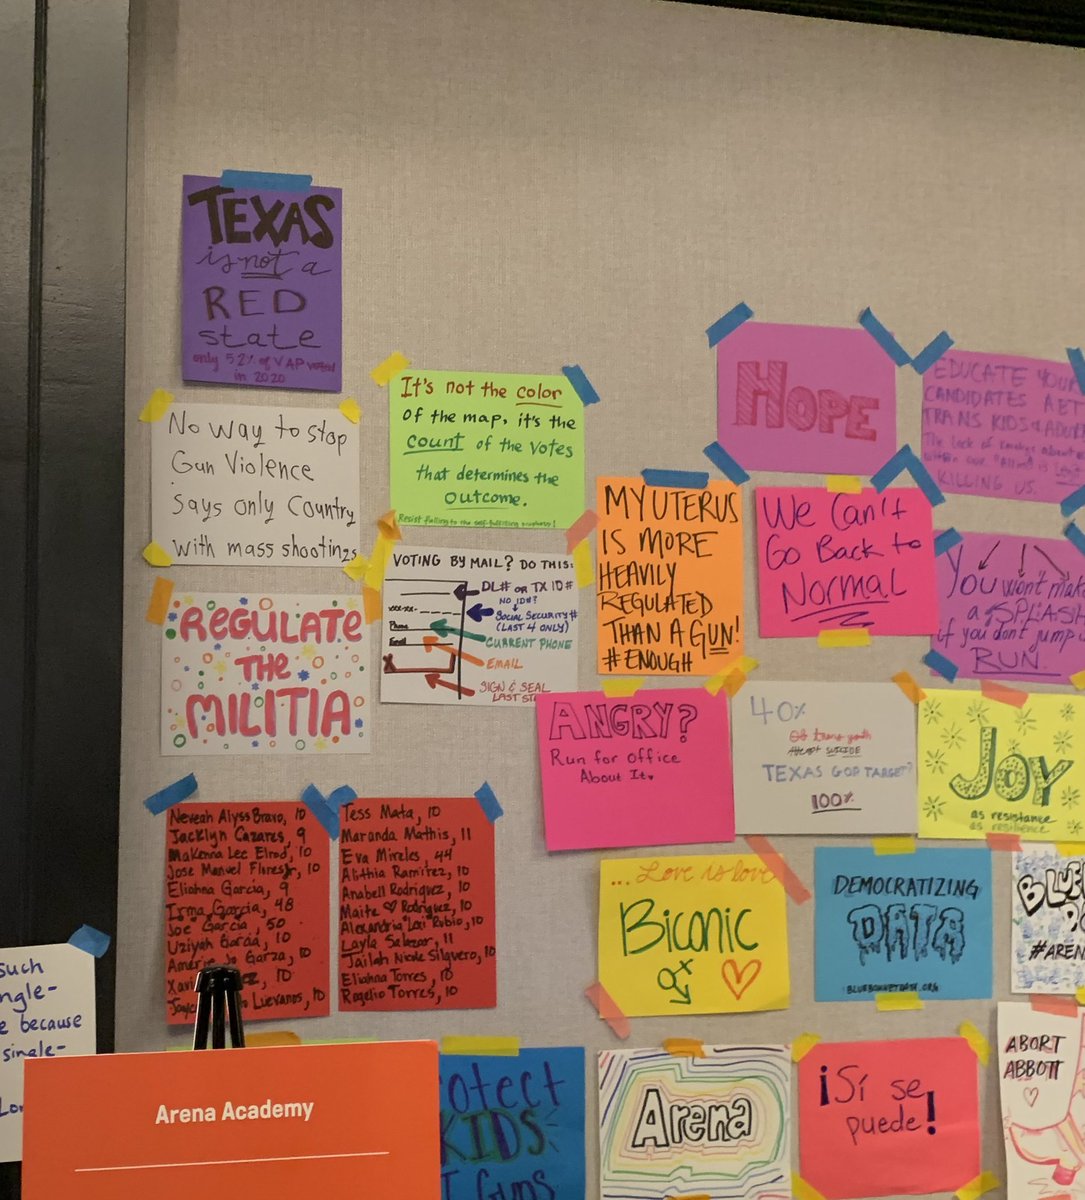 TEXAS
is not a
RED
state
only 52% of VAP voted
in 2020
No way to stop
Gun Violence
says only Country
with mass shootings
It's not the color
of the map, it's the
count of the votes
that determines the
outcome.
Resist falling to the self-fulfilling prophecy!
REGULATE
THE
MILITIA
VOTING BY MAIL? DO THIS:
DL# OR TX ID#
NO ID#?
SOCIAL SECURITY#
(LAST 4 ONLY)
Phone
CURRENT PHONE
Email
EMAIL
X
SIGN & SEAL
LAST
MY UTERUS
IS MORE
HEAVILY
REGULATED
THAN A GUN!
#ENOUGH
HOPE
EDUCATE YOUR
CANDIDATES ABT
TRANS KIDS &
The lack of
KILLING US.
We Can't
Go Back to
Normal
You won't
a SPLASH
if you don't jump
RUN.
ANGRY?
Run for office
About It.
40%
Of trans youth
attempt SUICIDE
TEXAS GOP TARGET?
100%
JOY
as resistance
as resilience
Neveah Alyss Bravo, 10
Jacklyn Cazares, 9
Makenna Lee Elrod, 10
Jose Manuel Flores Jr, 10
Eliahna Garcia, 9
Irma Garcia, 48
Joe Garcia, 50
Uziyah Garcia, 10
Amerie Jo Garza, 10
Xavi ez, 10
Jayc Luevanos, 10
Tess Mata, 10
Maranda Mathis, 11
Eva Mireles 44
Alithia Ramirez, 10
Anabell Rodriguez, 10
Maite Rodriguez, 10
Alexandria "Lexi" Rubio, 10
Layla Salazar, 11
Jailah Nicole Silguero, 10
Eliahna Torres, 10
Rogelio Torres, 10
... Love is love
Biconic
DEMOCRATIZING
DATA
BLUEBONNETDATA.ORG
#AREN
such
ngle-
e because
single-
Lor
Arena Academy
rotect
KIDS
Guns
Arena
¡Sí se
puede!
ABORT
ABBOTT